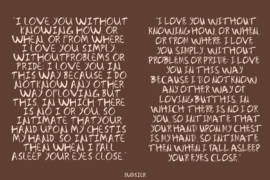 "I LOVE YOU WITHOUT
KNOWING HOW OR
WHEN OR FROM WHERE
I LOVE YOU SIMPLY
WITHOUT PROBLEMS OR
PRIDE: I LOVE YOU IN
THIS WAY BECAUSE I DO
NOT KNOW ANY OTHER
WAY OF LOVING BUT
THIS, IN WHICH THERE
IS NO I OR YOU, SO
INTIMATE THAT YOUR
HAND UPON MY CHEST IS
MY HAND, SO INTIMATE
THEN WHEN I FALL
ASLEEP YOUR EYES CLOSE."
"I LOVE YOU WITHOUT
KNOWING HOW, OR WHEN
OR FROM WHERE. I LOVE
YOU SIMPLY, WITHOUT
PROBLEMS OR PRIDE: I LOVE
YOU IN THIS WAY
BECAUSE I DO NOT KNOW
ANY OTHER WAY OF
LOVING BUT THIS, IN
WHICH THERE IS NO I OR
YOU, SO INTIMATE THAT
YOUR HAND UPON MY CHEST
IS MY HAND, SO INTIMATE
THEN WHEN I FALL ASLEEP
YOUR EYES CLOSE."